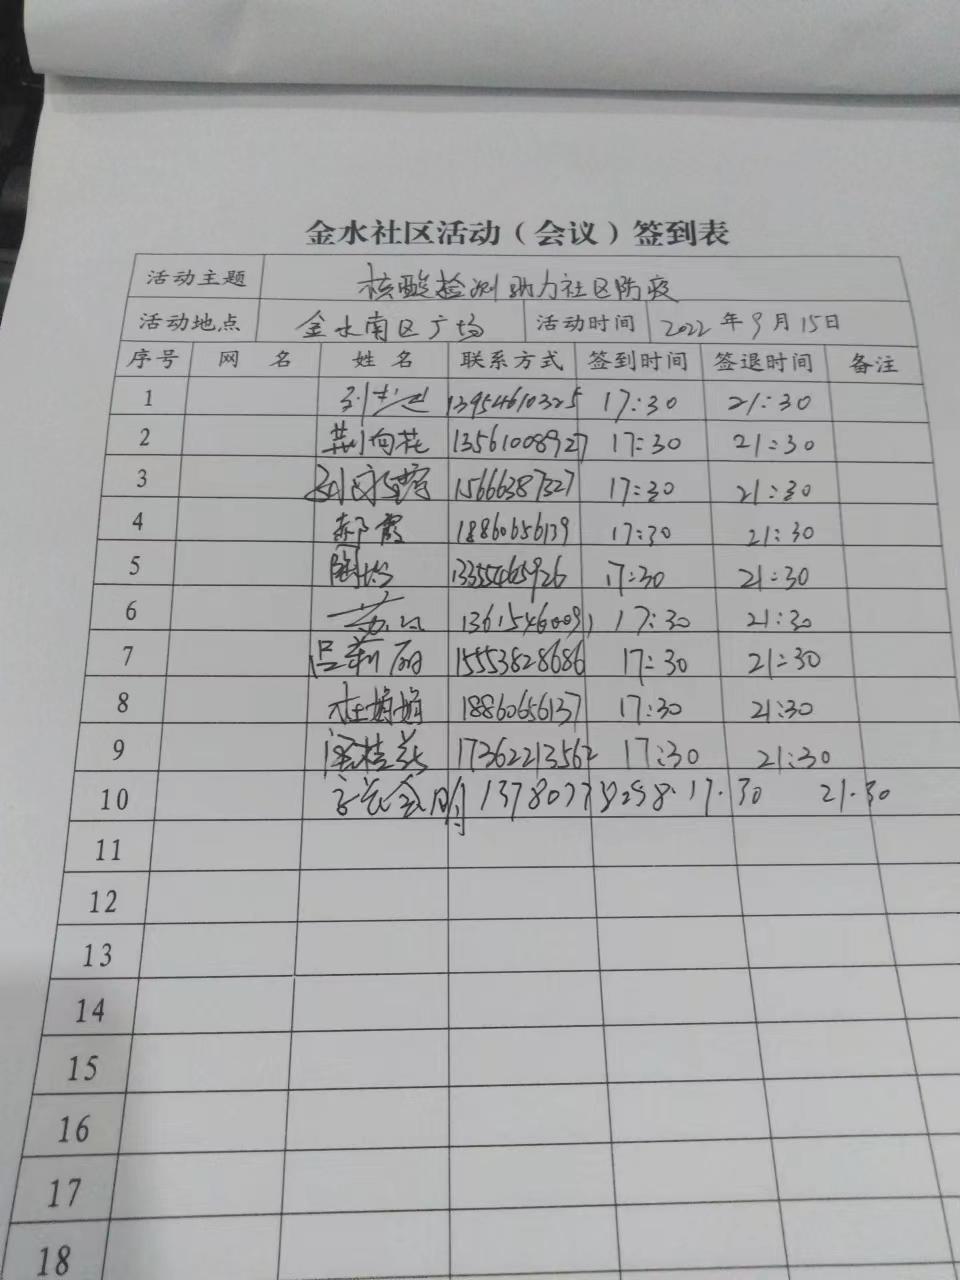 金水社区活动（会议）签到表
活动主题 核酸检测助力社区防疫
活动地点 金水南区广场 活动时间 2022年9月15日
序号 网名 姓名 联系方式 签到时间 签退时间 备注
1 13954610325 17:30 21:30
2 荆向花 13561008927 17:30 21:30
3 15666387327 17:30 21:30
4 郝霞 18860656139 17:30 21:30
5 13355465926 17:30 21:30
6 17:30 21:30
7 吕莉丽 15553828686 17:30 21:30
8 杜娟娟 18860656137 17:30 21:30
9 17362213562 17:30 21:30
10 17.30 21.30
11
12
13
14
15
16
17
18